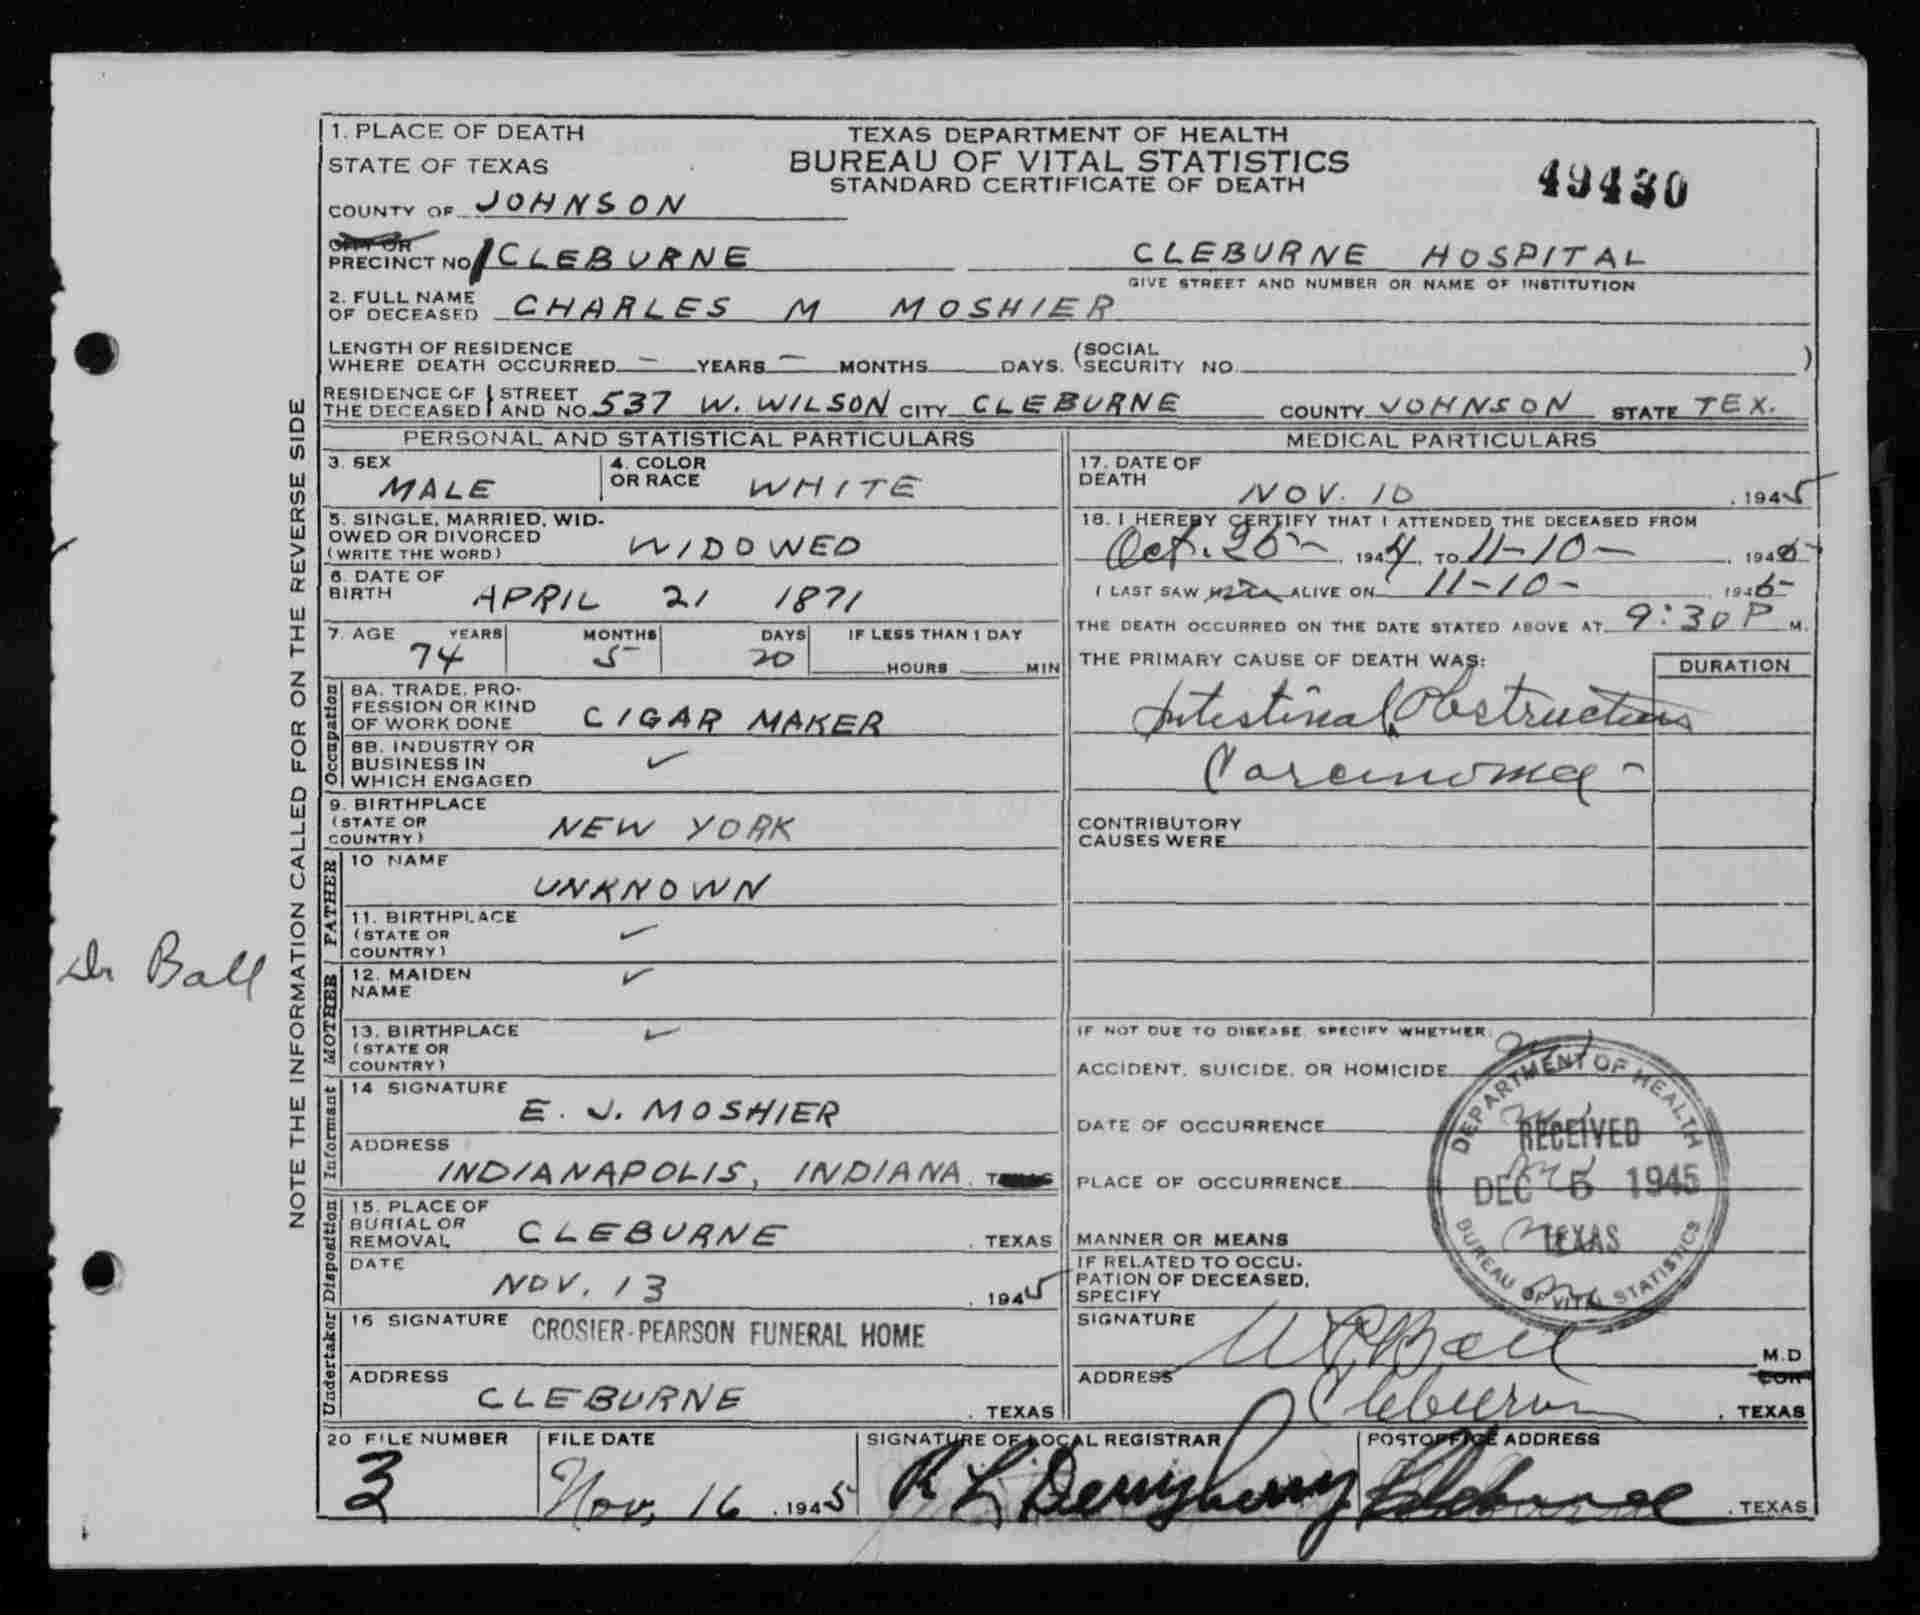 1. PLACE OF DEATH
STATE OF TEXAS
COUNTY OF JOHNSON
TEXAS DEPARTMENT OF HEALTH
BUREAU OF VITAL STATISTICS
STANDARD CERTIFICATE OF DEATH
49430
CITY OR
PRECINCT NO 1 CLEBURNE
CLEBURNE HOSPITAL
GIVE STREET AND NUMBER OR NAME OF INSTITUTION
2. FULL NAME
OF DECEASED CHARLES M MOSHIER
LENGTH OF RESIDENCE
WHERE DEATH OCCURRED - YEARS - MONTHS DAYS. (SOCIAL
SECURITY NO. )
RESIDENCE OF
THE DECEASED
STREET
AND NO. 537 W. WILSON CITY CLEBURNE COUNTY JOHNSON STATE TEX.
PERSONAL AND STATISTICAL PARTICULARS
3. SEX
MALE
4. COLOR
OR RACE WHITE
5. SINGLE, MARRIED, WID-
OWED OR DIVORCED
(WRITE THE WORD) WIDOWED
6. DATE OF
BIRTH APRIL 21 1871
7. AGE YEARS MONTHS DAYS IF LESS THAN 1 DAY
74 5 20 HOURS MIN
Occupation
8A. TRADE, PRO-
FESSION OR KIND
OF WORK DONE CIGAR MAKER
8B. INDUSTRY OR
BUSINESS IN
WHICH ENGAGED ✓
9. BIRTHPLACE
(STATE OR
COUNTRY) NEW YORK
FATHER
10 NAME
UNKNOWN
11. BIRTHPLACE
(STATE OR
COUNTRY) ✓
MOTHER
12. MAIDEN
NAME ✓
13. BIRTHPLACE
(STATE OR
COUNTRY) ✓
Informant
14 SIGNATURE
E. J. MOSHIER
ADDRESS
INDIANAPOLIS, INDIANA. TEXAS
Disposition
15. PLACE OF
BURIAL OR
REMOVAL CLEBURNE , TEXAS
DATE
NOV. 13 , 1945
Undertaker
16 SIGNATURE CROSIER-PEARSON FUNERAL HOME
ADDRESS
CLEBURNE , TEXAS
MEDICAL PARTICULARS
17. DATE OF
DEATH
NOV. 10 , 1945
18. I HEREBY CERTIFY THAT I ATTENDED THE DECEASED FROM
Oct. 26 , 1944, TO 11-10- , 1945
I LAST SAW him ALIVE ON 11-10- , 1945
THE DEATH OCCURRED ON THE DATE STATED ABOVE AT 9:30 P M.
THE PRIMARY CAUSE OF DEATH WAS: DURATION
Intestinal Obstruction
Carcinoma -
CONTRIBUTORY
CAUSES WERE
IF NOT DUE TO DISEASE, SPECIFY WHETHER:
ACCIDENT, SUICIDE, OR HOMICIDE
DATE OF OCCURRENCE
PLACE OF OCCURRENCE
MANNER OR MEANS
IF RELATED TO OCCU-
PATION OF DECEASED,
SPECIFY
DEPARTMENT OF HEALTH
RECEIVED
DEC 5 1945
TEXAS
BUREAU OF VITAL STATISTICS
SIGNATURE Ball M.D
ADDRESS Cleburne , TEXAS
20 FILE NUMBER
3
FILE DATE
Nov. 16 , 1945
SIGNATURE OF LOCAL REGISTRAR
R L Derryberry
POSTOFFICE ADDRESS
Cleburne , TEXAS
NOTE THE INFORMATION CALLED FOR ON THE REVERSE SIDE
Dr Ball